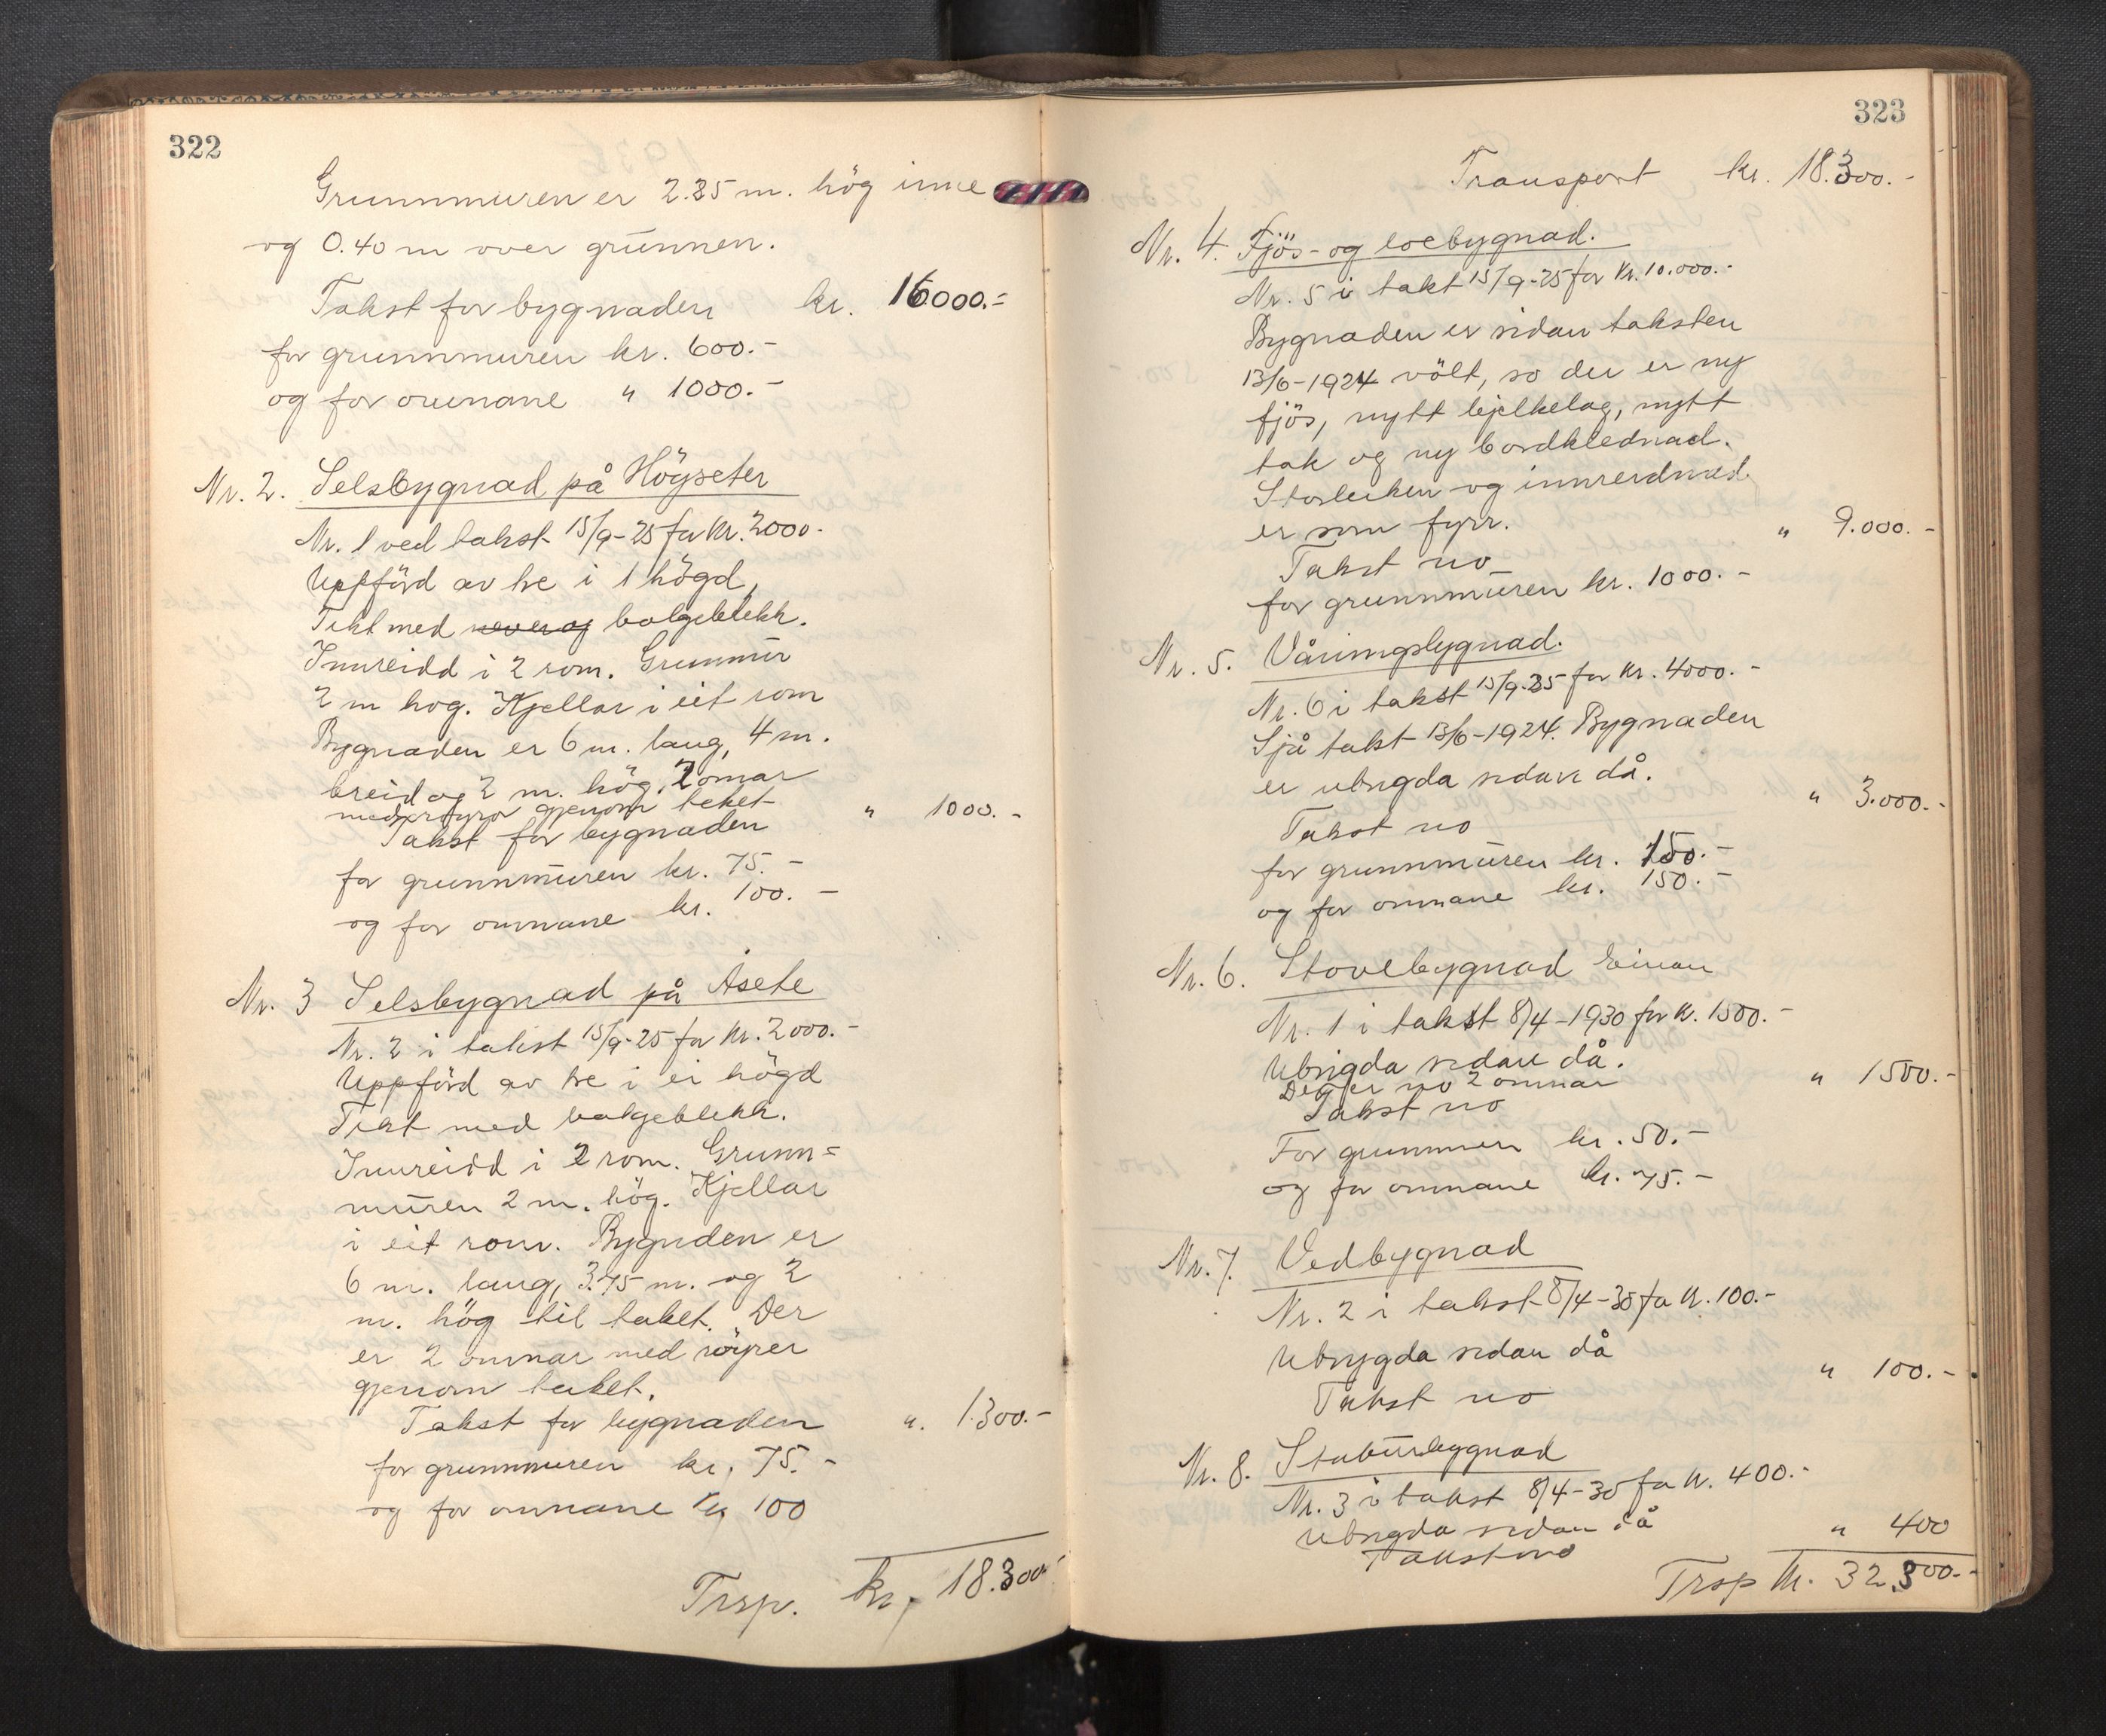 322
Grunnmuren er 2.25 m. hög inne
og 0.40 m over grunnen.
Takst for bygnaden kr. 16000.-
for grunnmuren kr. 600.-
og for omnane " 1000.-
Nr. 2. Selsbygnad på Högseter
Nr. 1 ved takst 15/9-25 for kr. 2000.-
Uppförd av tre i 1 högd,
Tekt med never og bolgeblekk.
Innreidd i 2 rom. Grunnmur
2 m hog. Kjellar i eit rom
Bygnaden er 6 m. lang, 4 m.
breid og 2 m. hög. 2 omnar
med röyrer gjenom taket
Takst for bygnaden " 1000.-
for grunnmuren kr. 75.-
og for omnane kr. 100.-
Nr. 3 Selsbygnad på Åsete
Nr. 2 i takst 15/9-25 for kr. 2000.-
Uppförd av tre i ei högd
Tekt med bolgeblekk.
Innreidd i 2 rom. Grunn=
muren 2 m. hög. Kjellar
i eit rom. Bygnden er
6 m. lang, 3.75 m. og 2
m. hög til taket. Der
er 2 omnar med röyrer
gjenom taket.
Takst for bygnaden ". 1.300.-
for grunnmuren kr. 75.-
og for omnane kr 100
Trsp. kr. 18.300.-
323
Transport kr. 18.300.-
Nr. 4. Fjös- og loebygnad.
Nr. 5 i takt 15/9-25 for kr. 10.000.-
Bygnaden er sidan taksten
13/6-1924 völt, so der er ny
fjös, nytt bjelkelag, nytt
tak og ny bordklednad.
Storleiken og innreidnad
er som fyrr.
Takst no " 9.000.-
for grunnmuren kr. 1000.-
Nr. 5. Våningsbygnad.
Nr. 6 i takst 15/9-25 for kr. 4000.-
Sjå takst 13/6-1924. Bygnaden
er ubrigda sidan då.
Takst no " 3.000.-
for grunnmuren kr. 150.-
og for omnane kr. 150.-
Nr. 6. Stovebygnad Einan
Nr. 1 i takst 8/4-1930 for kr. 1500.-
Ubrigda sidan då.
Der er no 2 omnar
Takst no " 1500.-
For grunnmuren kr. 50.-
og for omnane kr. 75.-
Nr. 7. Vedbygnad
Nr. 2 i takst 8/4-30 for kr. 100.-
Ubrygda sidan då
Takst no " 100.-
Nr. 8. Stabursbygnad
Nr. 3 i takst 8/4-30 for kr. 400.-
Ubrigda sidan då
Takst no " 400
Trsp kr. 32.300.-